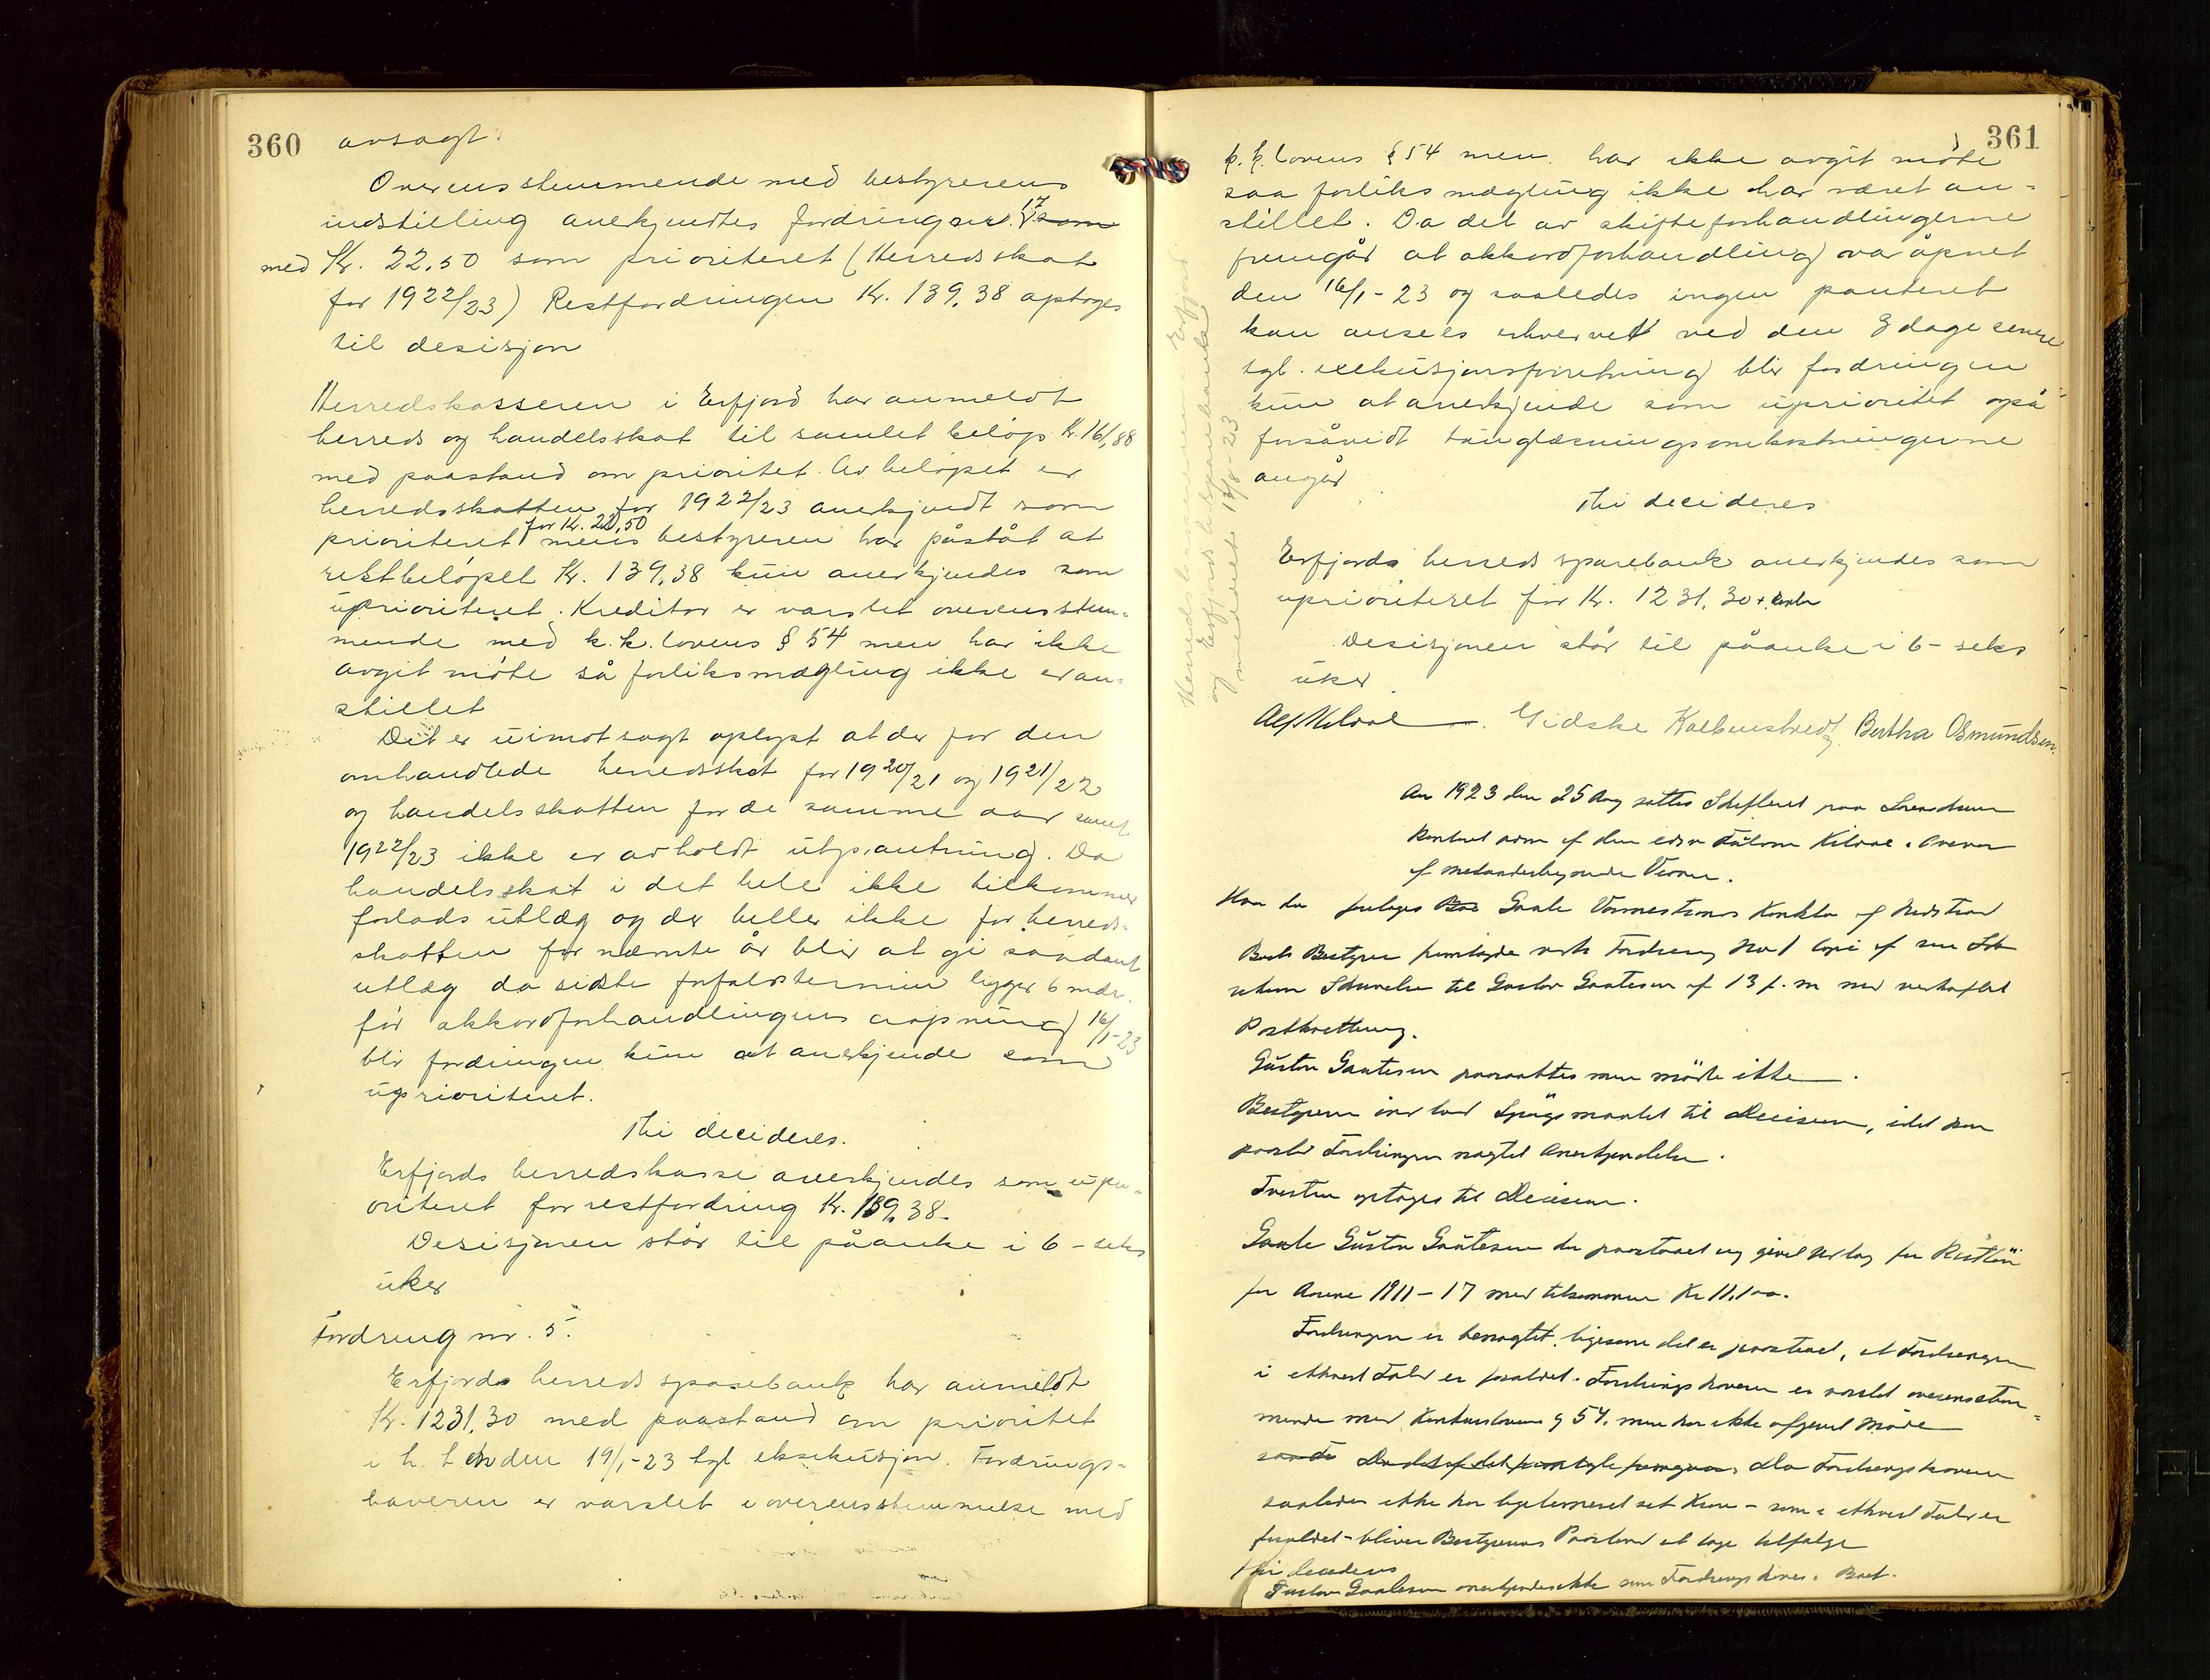 360
avsagt.
Overensstemmende med bestyrerens
indstilling anerkjendtes fordring nr. 17 som
med Kr. 22.50 som prioriteret (Herredsskat
for 1922/23) Restfordringen Kr. 139,38 optoges
til desisjon
Herredskasseren i Erfjord har anmeldt
herreds og handelsskat til samlet beløp Kr. 161,88
med paastand om prioritet. Av beløpet er
herredsskatten for 1922/23 anerkjendt som
for Kr. 22,50
prioriteret mens bestyreren har påståt at
restbeløpet Kr. 139,38 kun anerkjendes som
uprioriteret. Kreditor er varslet overensstem-
mende med k.k. lovens § 54 men har ikke
avgit møte så forliksmægling ikke er an-
stillet
Det er uimotsagt oplyst at der for den
omhandlede herredsskat for 1920/21 og 1921/22
og handelsskatten for de samme aar samt
1922/23 ikke er avholdt utpantning. Da
handelsskat i det hele ikke tilkommer
forlods utlæg og der heller ikke for herreds-
skatten for nævnte år blir at gi saadant
utlæg da sidste forfaldstermin ligger 6 mdr.
før akkordforhandlingens åapning 16/1-23
blir fordringen kun at anerkjende som
uprioriteret.
Thi decideres.
Erfjords herredskasse anerkjendes som upri-
oriteret for restfordring Kr. 139,38.
Desisjonen står til påanke i 6 - seks
uker
Fordring nr. 5.
Erfjords herreds sparebank har anmeldt
Kr. 1231,30 med paastand om prioritet
i h. t. den 19/1-23 tgl. eksekusjon. Fordrings-
haveren er varslet i overensstemmelse med
361
k.k. lovens § 54 men har ikke avgit møte
saa forliksmægling ikke har været an-
stillet. Da det av skifteforhandlingerne
fremgår at akkordforhandling var åpnet
den 16/1-23 og saaledes ingen panteret
kan ansees erhvervet ved den 3 dage senere
tgl. exekusjonsforretning blir fordringen
kun at anerkjende som uprioritet også
forsåvidt tinglæsningsomkostningerne
angår
Thi decideres
Erfjords herreds sparebank anerkjendes som
uprioriteret for Kr. 1231,30 + renter
Desisjonen står til påanke i 6 - seks
uker
Alf Kildal. Gidske Kolbenstvedt Bertha Osmundsen.
Herredskassereren i Erfjord
og Erfjord herreds sparebank
meddelt 13/8-23
Aar 1923 den 25 Aug sattes Skifteret paa Sorenskriver
kontoret adm af den edsv Fuldm Kildal. Overvær
af medunderskrevne Vidner.
Hvor da foretoges Boe Gaute Konkbo af Nedstrand
Boets Bestyrer fremlagde vedr Fordring No 1 Copi af en
Skrivelse til Gustav Gautesen af 13 f. m med vedhæftet
Postkvittering.
Gustav Gautesen paaraabtes men mödte ikke.
Bestyreren indlod Spörgsmaalet til Decision, idet han
paastod Fordringen nægtet Anerkjendelse.
Tvisten optages til Decision.
Gustav Gautesen
for Aarene 1911 - 17 med tilsammen Kr 11,100.
Fordringen er benægtet ligesom det er paastaaet, at Fordringen
i ethvert Fald er forældet. Fordringshaveren er varslet overensstem-
mende med Konkurslovens § 54, men har ikke afgivet Möde
Da Fordringshaveren
saaledes ikke har legitimeret sit Krav - som i ethvert Fald er
forældet - bliver Bestyrerens Paastand at tage tilfölge
Thi decideres
Gustav Gautesen anerkjendes ikke som Fordringshaver i Boet.